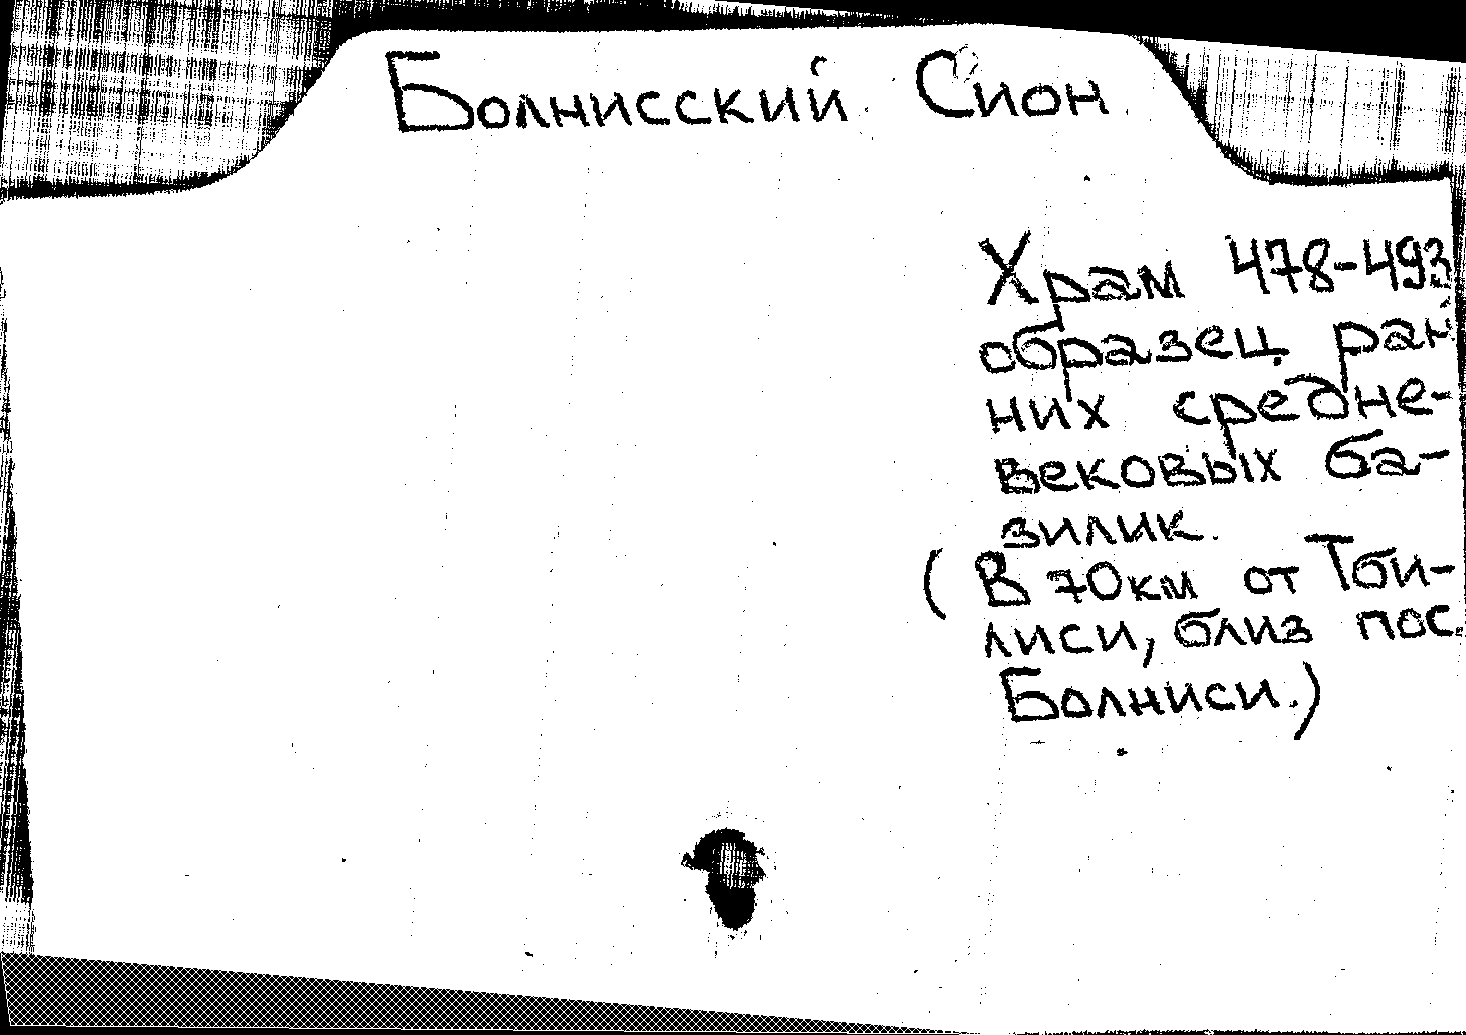 Болнисский Сион
Храм 478-493
образец ран
них средне-
вековых ба-
зилик.
(В 70км от Тби-
лиси, близ пос.
Болниси.)